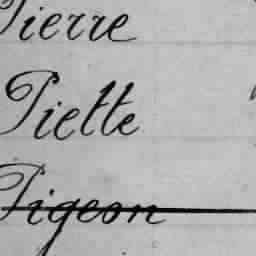 Pierre
Piette
Pigeon